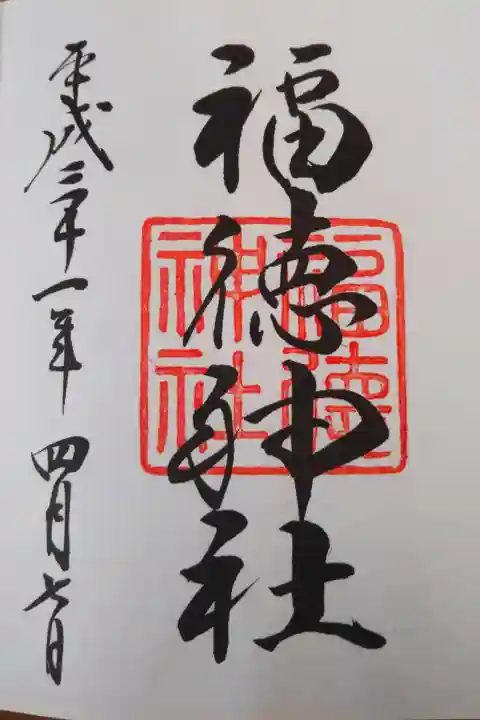 福徳神社
福徳
神社
平成三十一年 四月七日